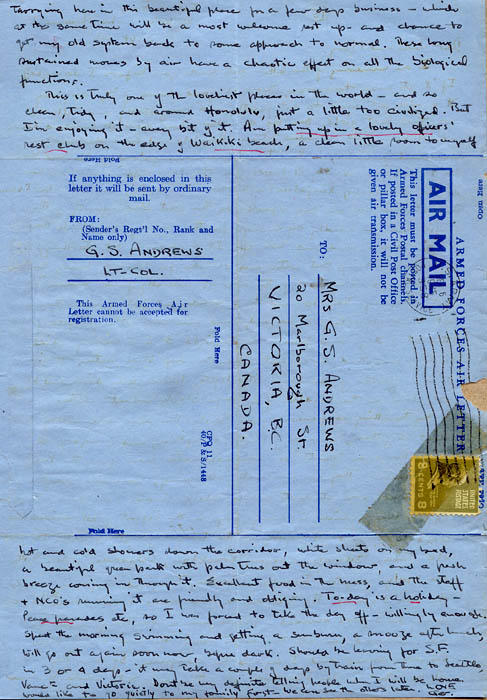 Tarrying here in this beautiful place for a few days business – which
at the same time will be a most welcome rest up – and chance to
get my old system back to some approach to normal. These long
sustained moves by air have a chaotic effect on all the biological
functions.
This is truly one of the loveliest places in the world – and so
clean, tidy, and around Honolulu, just a little too civilized. But
I'm enjoying it – every bit of it. Am putting up in a lovely officers'
rest club on the edge of Waikiki beach, a clean little room to myself
Fold Here
If anything is enclosed in this
letter it will be sent by ordinary
mail.
FROM:
(Sender's Regt'l No., Rank and
Name only)
G. S. ANDREWS
LT-COL.
This Armed Forces Air
Letter cannot be accepted for
registration.
Fold Here
CFO 11
40/P & S/1448
TO:
MRS G. S. ANDREWS
20 Marlborough St.
VICTORIA, B.C.
CANADA.
ARMED FORCES AIR LETTER
AIR MAIL
This letter must be posted in
Armed Forces Postal channels.
If posted in a Civil Post Office
or pillar box, it will not be
given air transmission.
UNITED
STATES
POSTAGE
8 CENTS 8
Fold Here
hot and cold showers down the corridor, white sheets on my bed,
a beautiful green park with palm trees out the window, and a fresh
breeze coming in through it. Excellent food in the mess, and the staff
+ NCO's running it are friendly and obliging. To-day is a holiday –
Peace parades etc, so I was forced to take the day off – willingly enough.
Spent the morning swimming and getting a sunburn, a snooze after lunch,
will go out again soon now, before dark. Should be leaving for S.F.
in 3 or 4 days – it may take a couple of days by train from there to Seattle,
Vanc. and Victoria. Don't be definite telling people when I will be home.
Would like to go quietly to my family first – we can see the others later. LOVE